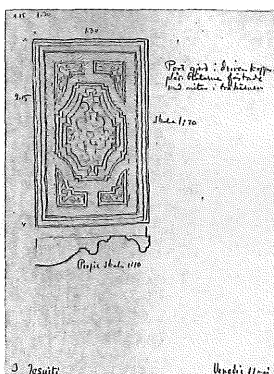 4.15 1.30
1.30
Port gjord i drifven koppar
plåtarne fästade
med nitar i träkarmen
2.15
Skala 1/20
Profil skala 1/10
I Jesuiti
Venedig 11 maj